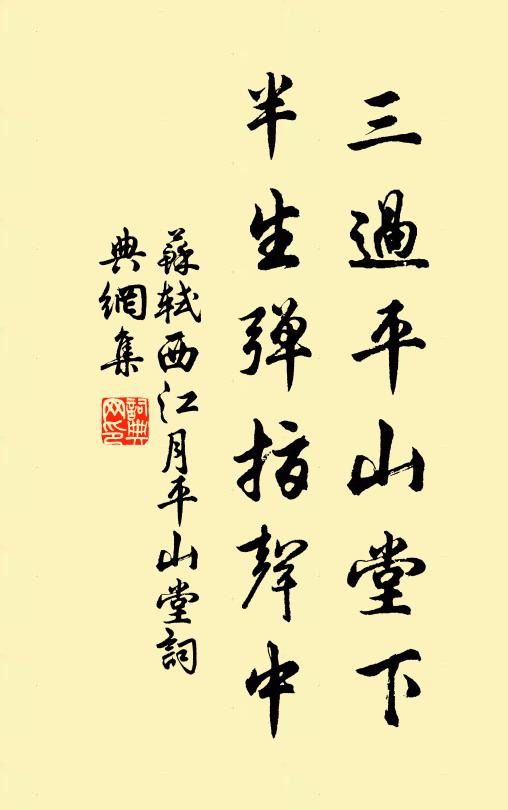 三過平山堂下
半生弹指聲中
蘇轼西江月平山堂詞
典網集
詞典网印